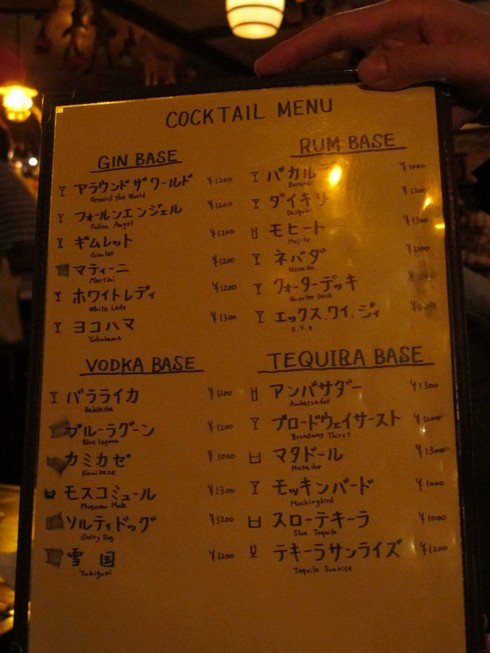 COCKTAIL MENU
GIN BASE
アラウンド ザ ワールド ¥1200
Around the World
フォールンエンジェル ¥1200
Fallen Angel
ギムレット ¥1200
Gimlet
マティーニ ¥1200
Martini
ホワイトレディ ¥1200
White Lady
ヨコハマ ¥1300
Yokohama
RUM BASE
バカルディ ¥1000
Bacardi
ダイキリ ¥1200
Daiquiri
モヒート ¥1300
Mojito
ネバダ
Nevada
クォーターデッキ
Quarter Deck
エックス.ワイ.ジィ
X.Y.Z
VODKA BASE
バラライカ ¥1200
Balalaika
ブルーラグーン ¥1200
Blue Lagoon
カミカゼ ¥1000
Kamikaze
モスコミュール ¥1300
Moscow Mule
ソルティドッグ ¥1200
Salty Dog
雪国 ¥1200
Yukiguni
TEQUIRA BASE
アンバサダー ¥1300
Ambassador
ブロードウェイサースト ¥1200
Broadway Thirst
マタドール ¥1300
Matador
モッキンバード ¥1000
Mockingbird
スローテキーラ ¥1000
Sloe Tequila
テキーラサンライズ ¥1200
Tequila Sunrise